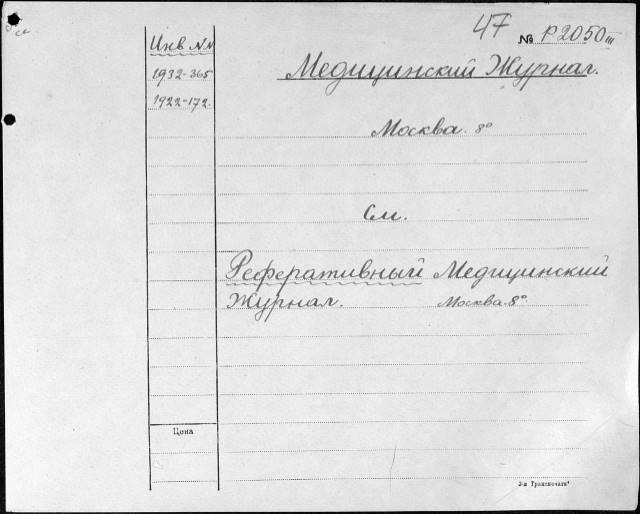 47
№ P2050 III
Инв NN
1932-365
1922-172.
Медицинский Журнал.
Москва. 8°
См.
Реферативный Медицинский
Журнал. Москва. 8°.
Цена
3-я Транспечати"